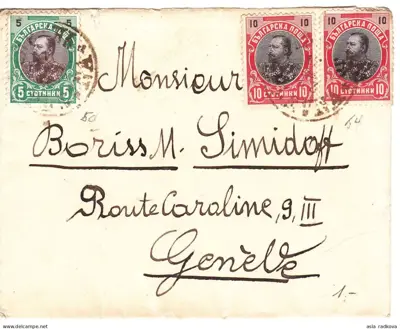 5 5
БЪЛГАРСКА ПОЩА
5 СТОТИНКИ 5
10 10
БЪЛГАРСКА ПОЩА
10 СТОТИНКИ 10
10 10
БЪЛГАРСКА ПОЩА
10 СТОТИНКИ 10
Monsieur
50
54
Boriss M. Simidoff
Route Caroline, 9, III
Genève
1.-
www.delcampe.net
asia radkova